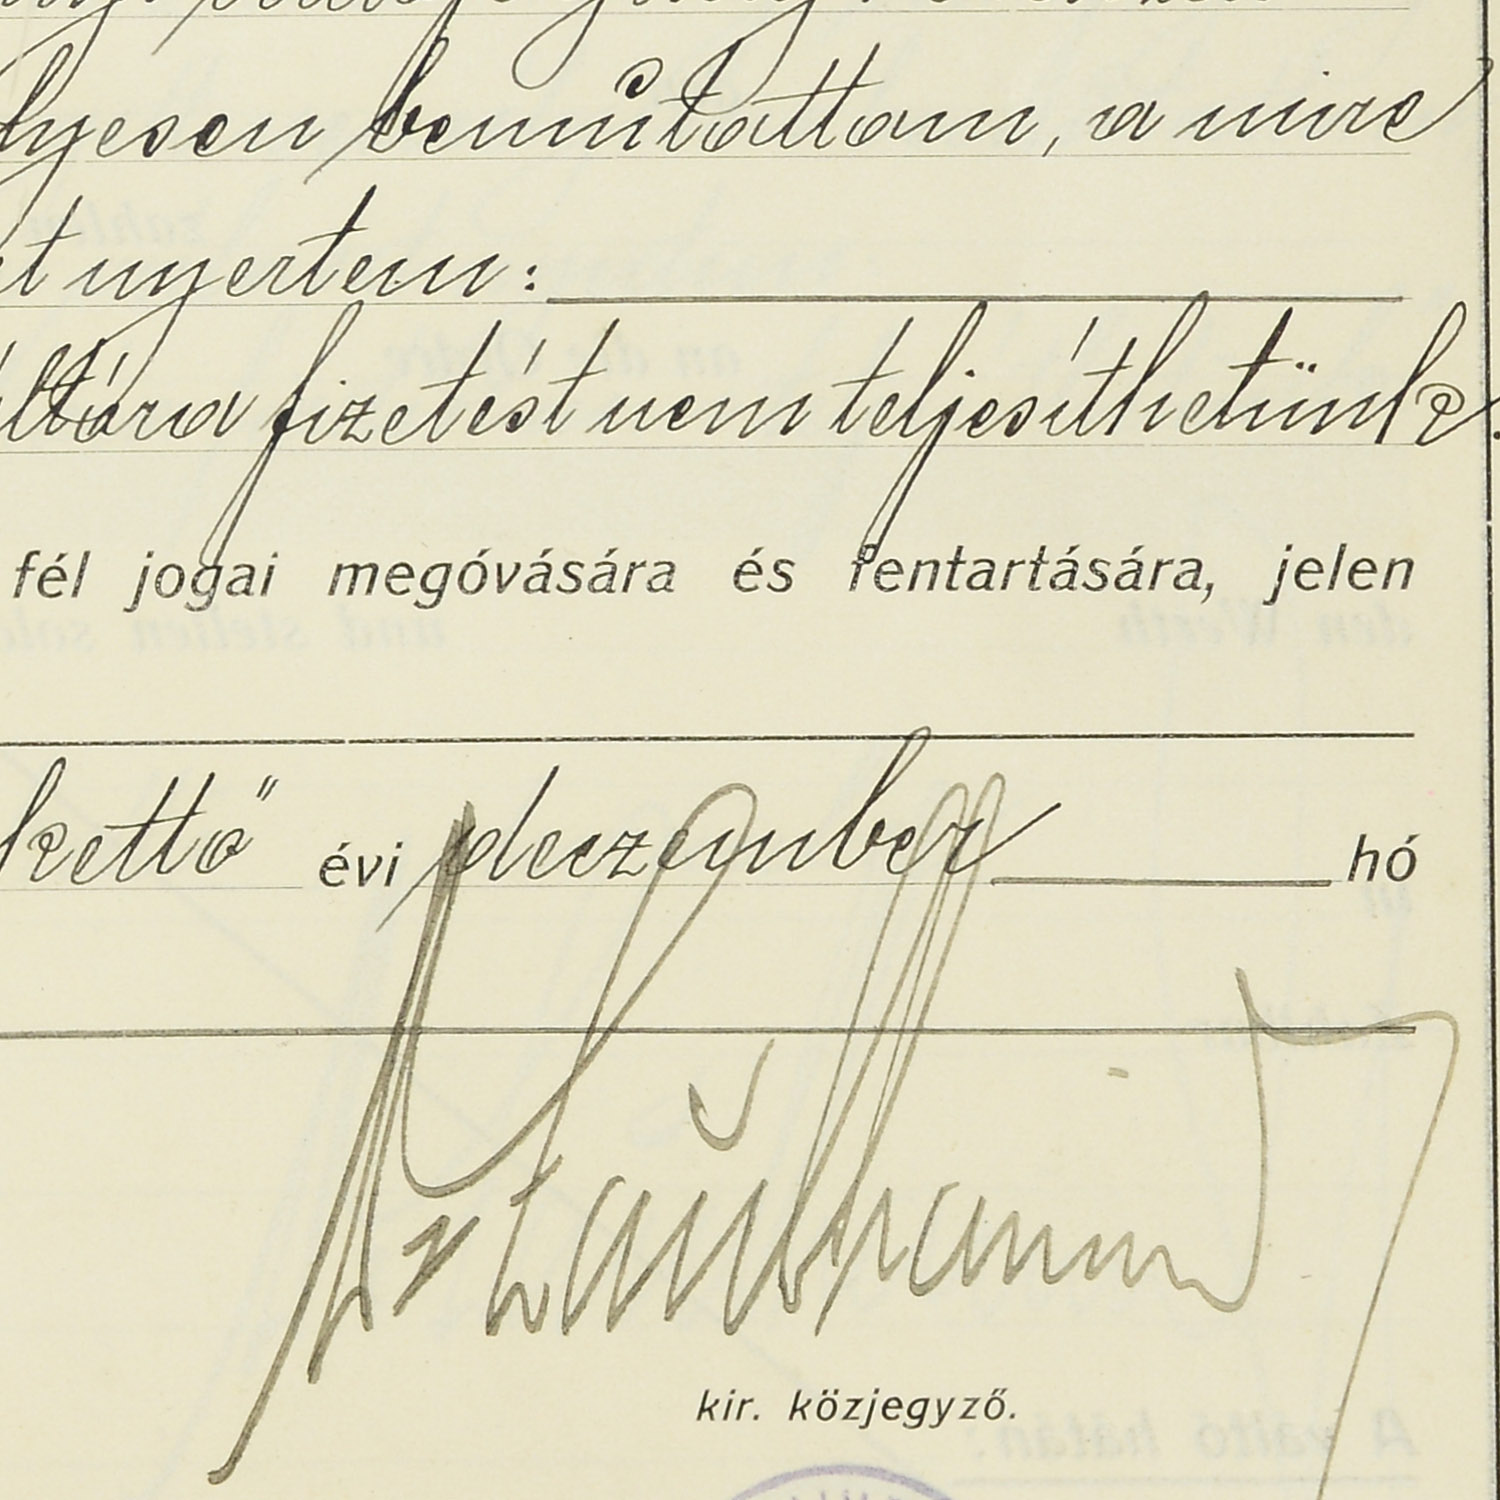 lyesen bemutattam, a mire
t nyertem:
fizetést nem teljesíthetünk.
fél jogai megóvására és fentartására, jelen
kettő" évi deczember hó
kir. közjegyző.